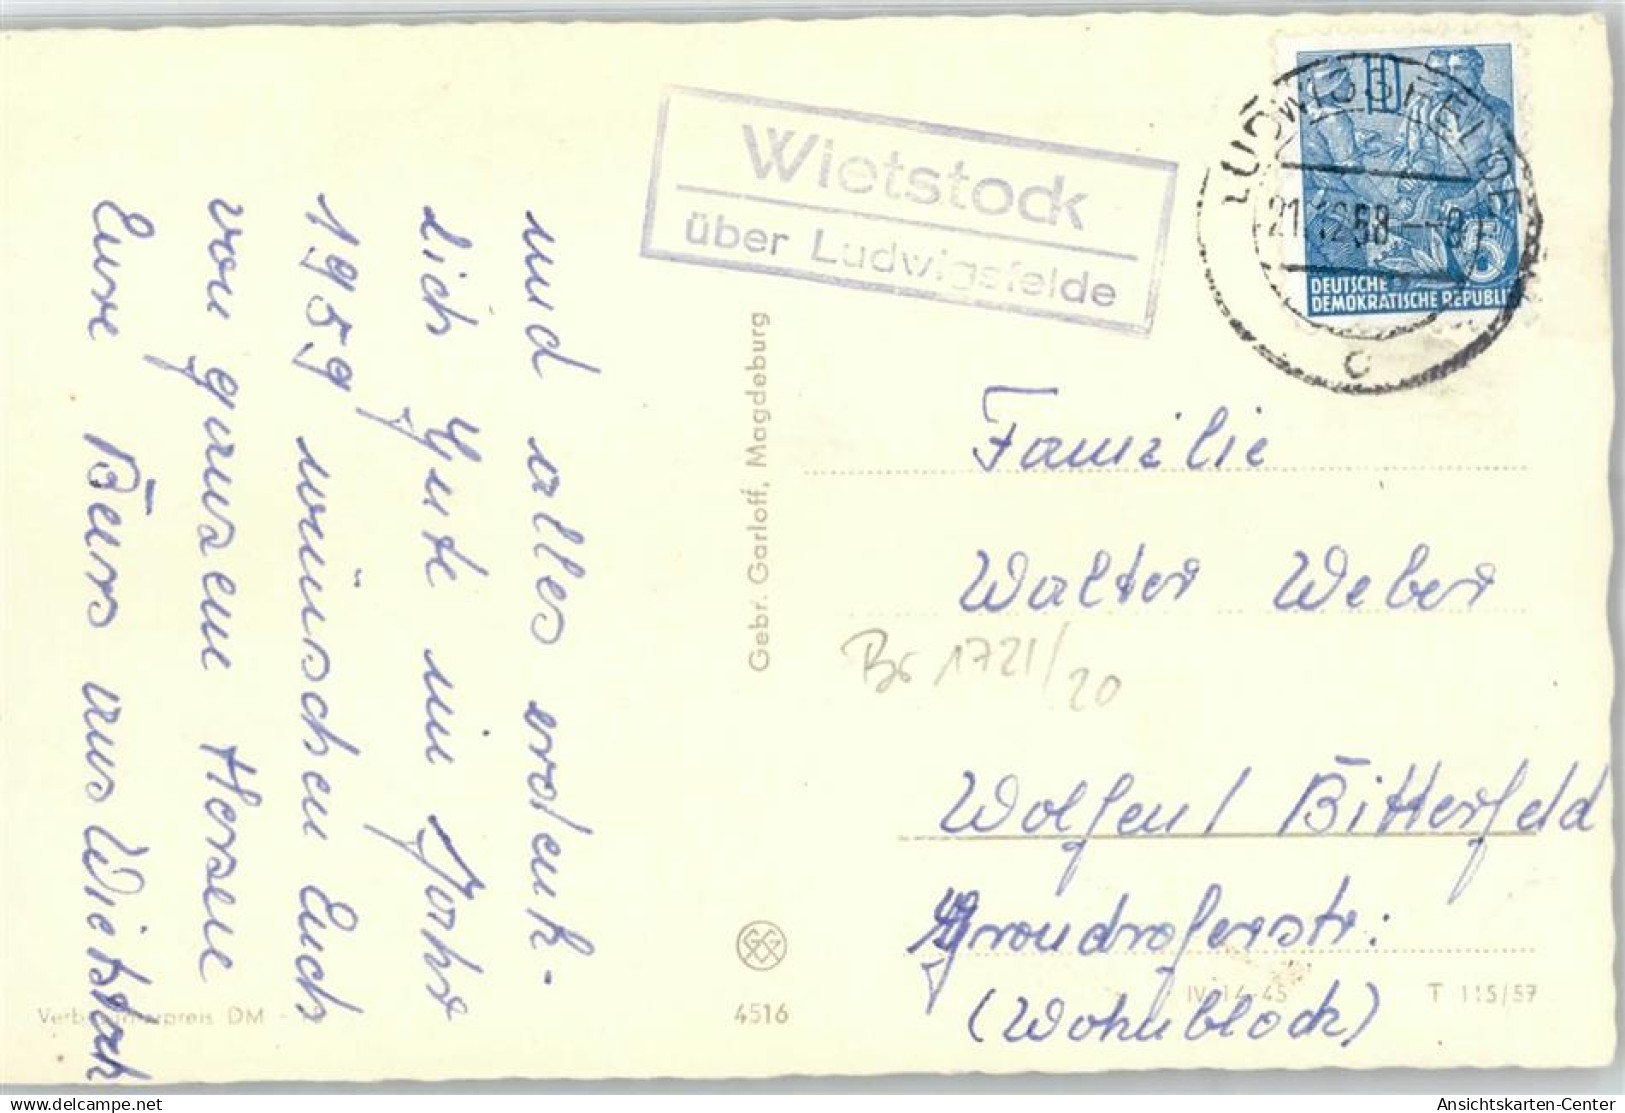 und alles erdenk-
lich Gute im Jahre
1959 wünschen Euch
von ganzem Herzen
Eure Bärs aus Wietstock
Wietstock
über Ludwigsfelde
LUDWIGSFELDE
21.12.58.--8
c
10
5
DEUTSCHE
DEMOKRATISCHE REPUBLIK
Gebr. Garloff, Magdeburg
Familie
Walter Weber
Br 1721/20
Wolfen / Bitterfeld
(Wohnblock)
IV-14-45
T 115/57
4516
Verbraucherpreis DM
Ansichtskarten-Center